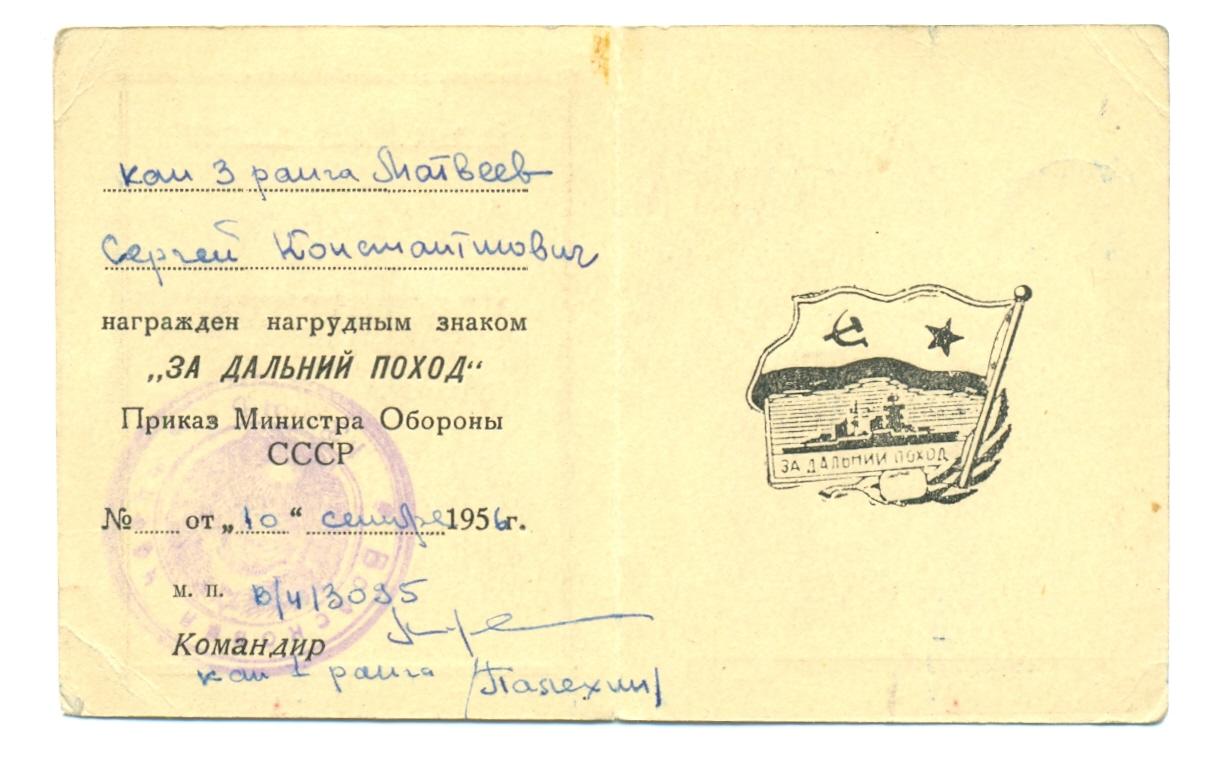 кап 3 ранга Матвеев
Сергей Константинович
награжден нагрудным знаком
„ЗА ДАЛЬНИЙ ПОХОД“
Приказ Министра Обороны
СССР
№ от „10“ сентября 1956г.
м. п. в/ч
Командир
кап 1 ранга
ЗА ДАЛЬНИЙ ПОХОД